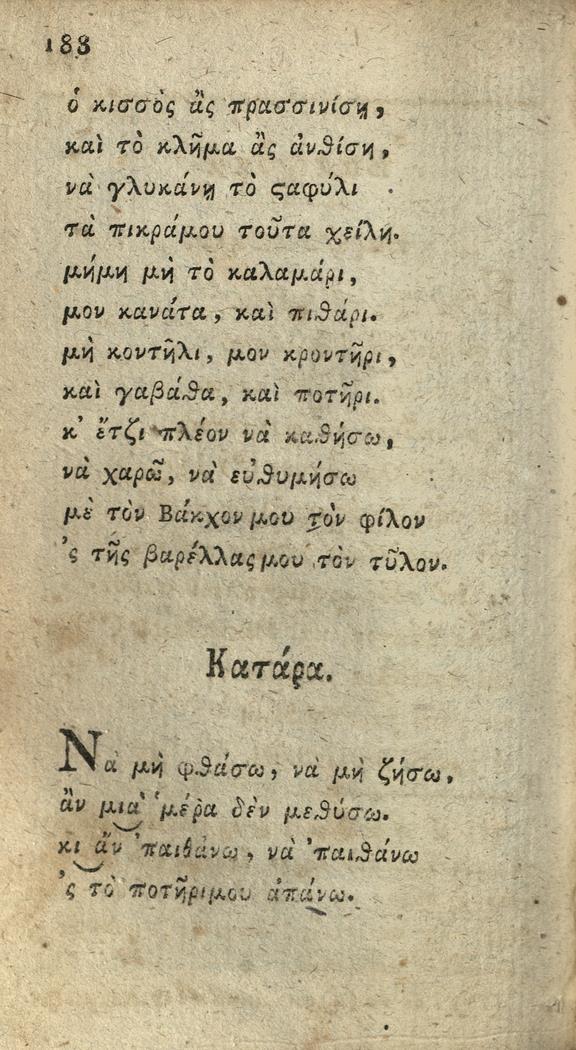 188
ὁ κισσὸς ἂς πρασσινίσῃ,
καὶ τὸ κλῆμα ἂς ἀνθίσῃ,
νὰ γλυκάνῃ τὸ ϛαφύλι
τὰ πικράμου τοῦτα χείλη.
μήμη μὴ τὸ καλαμάρι,
μον κανάτα, καὶ πιθάρι.
μὴ κοντῆλι, μον κροντῆρι,
καὶ γαβάθα, καὶ ποτῆρι.
κ' ἔτζι πλέον νὰ καθήσω,
νὰ χαρῶ, νὰ εὐθυμήσω
μὲ τὸν Βάκχον μου τὸν φίλον
'ς τῆς βαρέλλας μου τὸν τῦλον.
Κατάρα.
Νὰ μὴ φθάσω, νὰ μὴ ζήσω,
ἂν μιὰ 'μέρα δὲν μεθύσω.
κι ἂν 'παιθάνω, νὰ 'παιθάνω
'ς τὸ ποτῆριμου ἀπάνω.